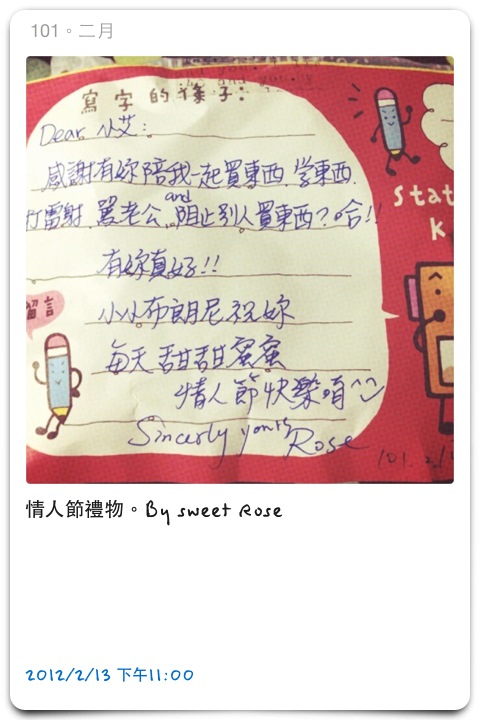 101。二月
寫字的條子:
Dear 小艾:
感謝有妳陪我一起買東西.学東西.
打雷射.罵老公.and阻止別人買東西?哈!!
有妳真好!!
小小布朗尼祝妳
每天甜甜蜜蜜
情人節快樂唷^^
Sincerly yours
Rose
stat
k
留言
情人節禮物。By sweet Rose
2012/2/13 下午11:00